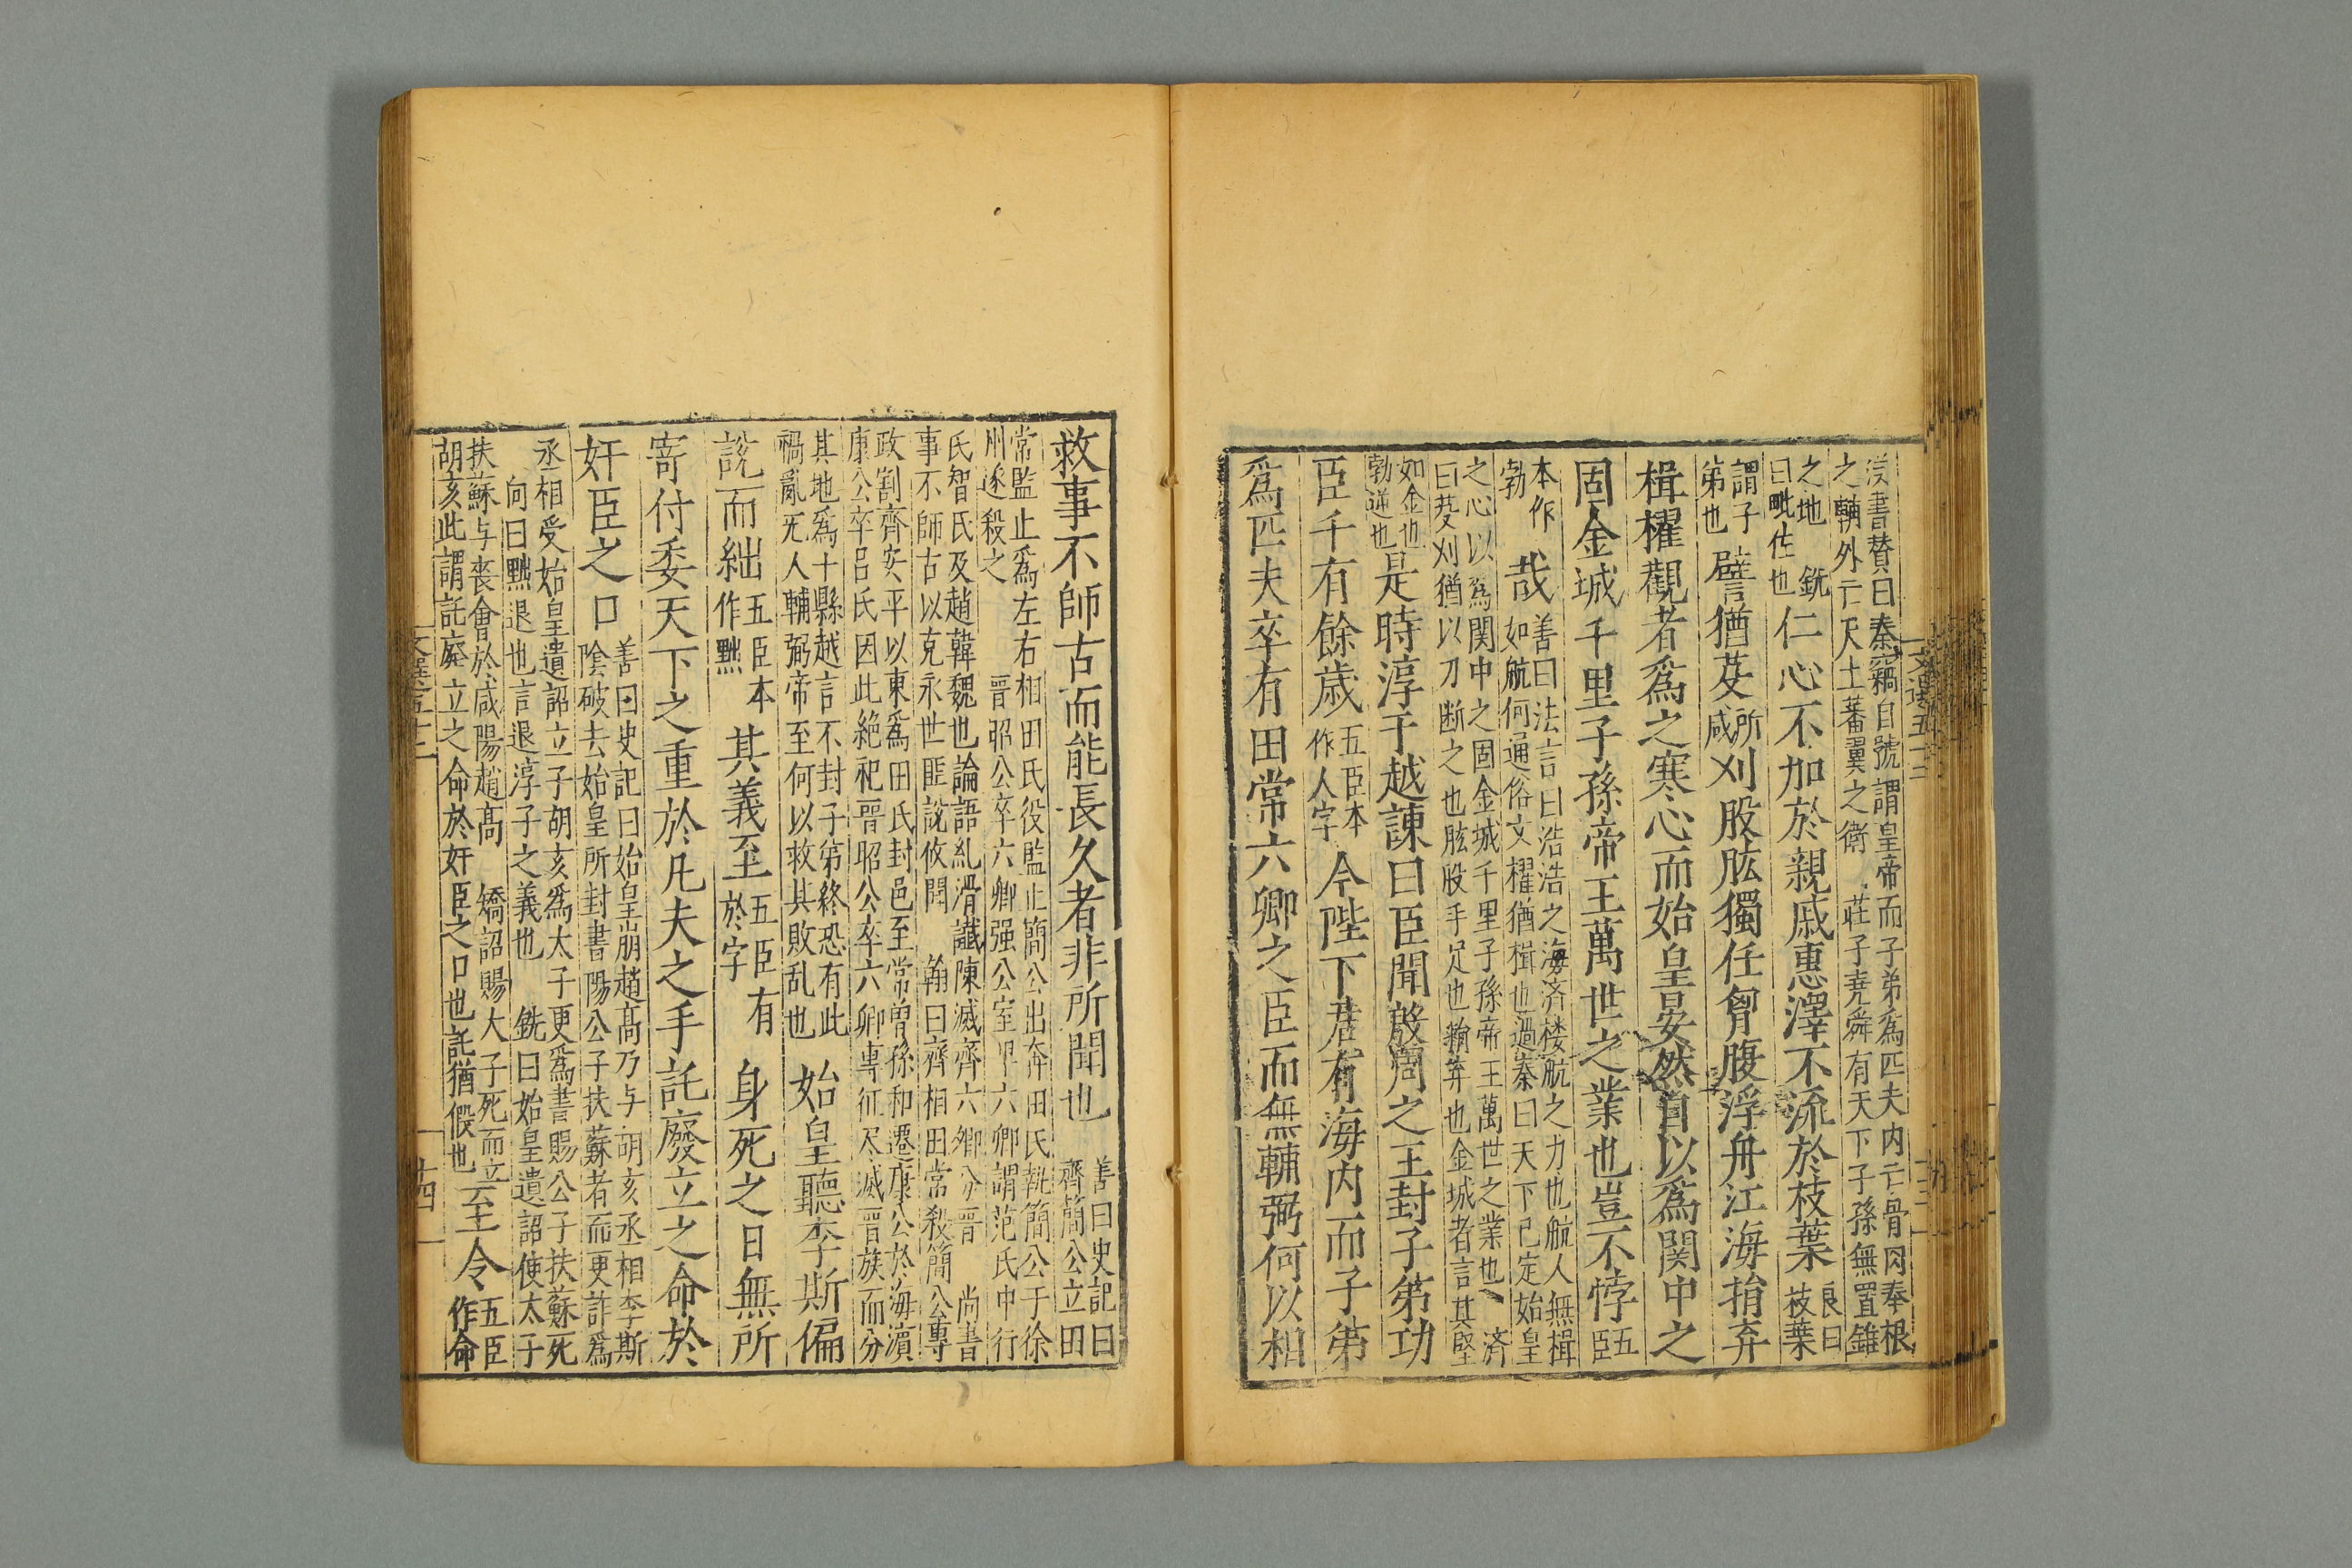 漢書賛曰秦竊自號謂皇帝而子弟爲匹夫内亡骨肉奉根
之輔外亡天土蕃翼之衛 莊子堯舜有天下子孫無置錐
之地 銑
曰毗佐也
仁心不加於親戚惠澤不流於枝葉
良曰
枝葉
謂子
弟也
譬猶芟
所
咸
刈股肱獨任胷腹浮舟江海捐弃
楫櫂觀者爲之寒心而始皇晏然自以爲関中之
固金城千里子孫帝王萬世之業也豈不悖
五
臣
本作
勃
哉
善曰法言曰浩浩之海済楼航之力也航人無楫
如航何通俗文櫂猶楫也過秦曰天下已定始皇
之心以爲関中之固金城千里子孫帝王萬世之業也 済
曰芟刈猶以刀断之也肱股手足也 弃也金城者言其堅
如金也
勃逆也
是時淳于越諫曰臣聞殷周之王封子弟功
臣千有餘歳
五臣本
作人字
今陛下君有海内而子弟
爲匹夫卒有田常六卿之臣而無輔弼何以相
救事不師古而能長久者非所聞也
善曰史記曰
齊簡公立田
常監止爲左右相田氏役監止簡公出奔田氏執簡公于徐
州遂殺之 晋昭公卒六卿强公室卑六卿謂范氏中行
氏智氏及趙韓魏也論語糺滑讖陳滅齊六卿分晋 尚書
事不師古以克永世匪說攸聞 翰曰齊相田常殺簡公專
政割齊安平以東爲田氏封邑至常曽孫和遷康公於海濵
康公卒吕氏因此絶祀晋昭公卒六卿專征尽滅晋族而分
其地爲十縣越言不封子弟終恐有此
禍亂无人輔弼帝至何以救其敗乱也
始皇聽李斯偏
說而絀
五臣本
作黜
其義至
五臣有
於字
身死之日無所
寄付委天下之重於凡夫之手託廢立之命於
奸臣之口
善曰史記曰始皇崩趙髙乃与胡亥丞相李斯
陰破去始皇所封書陽公子扶蘇者而更詐爲
丞相受始皇遺詔立子胡亥爲太子更爲書賜公子扶蘇死
向曰黜退也言退淳子之義也 銑曰始皇遺詔使太子
扶蘇与䘮會於咸陽趙髙 矯詔賜大子死而立
胡亥此謂託廢立之命於奸臣之口也託猶假也
至令
五臣
作命